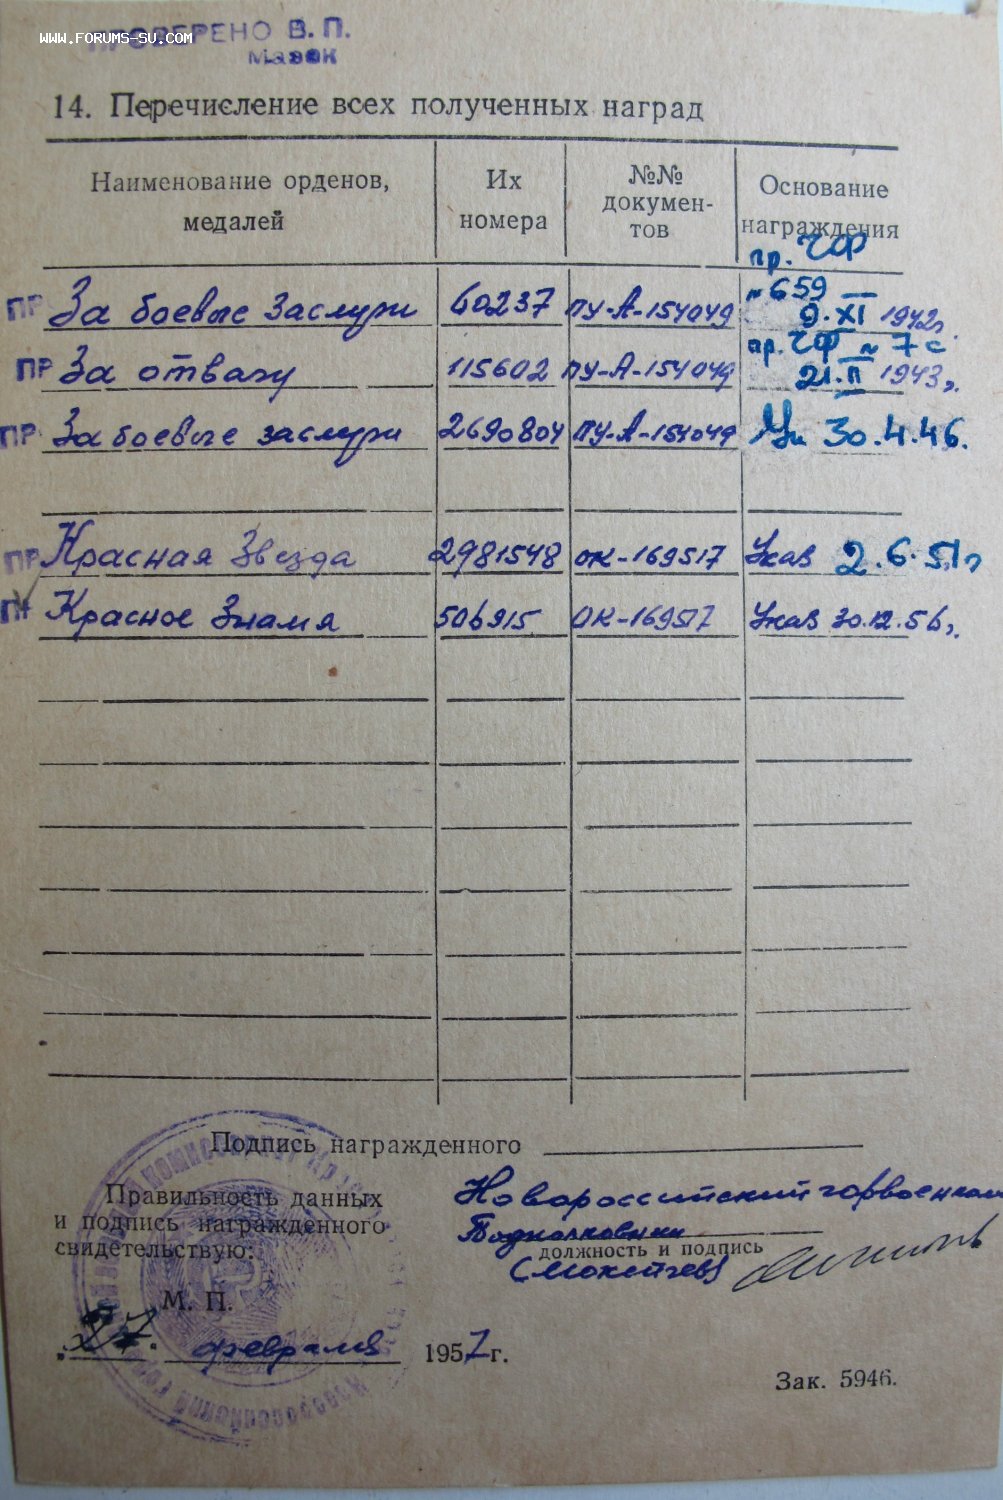 WWW.FORUMS-SU.COM
ПРОВЕРЕНО В. П.
14. Перечисление всех полученных наград
Наименование орденов, медалей
Их номера
№№ докумен-тов
Основание награждения
ПР За боевые заслуги 60237 ПУ-А-154049 пр. ЧФ № 659 9.XI 1942г.
ПР За отвагу 115602 ПУ-А-154049 пр. ЧФ № 7с 21.II 1943г.
ПР За боевые заслуги 2690804 ПУ-А-154049 30.4.46.
ПР Красная Звезда 2981548 ОК-169517 Указ 2.6.51г
ПР Красное Знамя 506915 ОК-169517 Указ 30.12.56г.
Подпись награжденного
Правильность данных
и подпись награжденного
свидетельствую:
Новороссийский горвоенком
Подполковник
должность и подпись
М. П.
"27" февраля 1957г.
Зак. 5946.